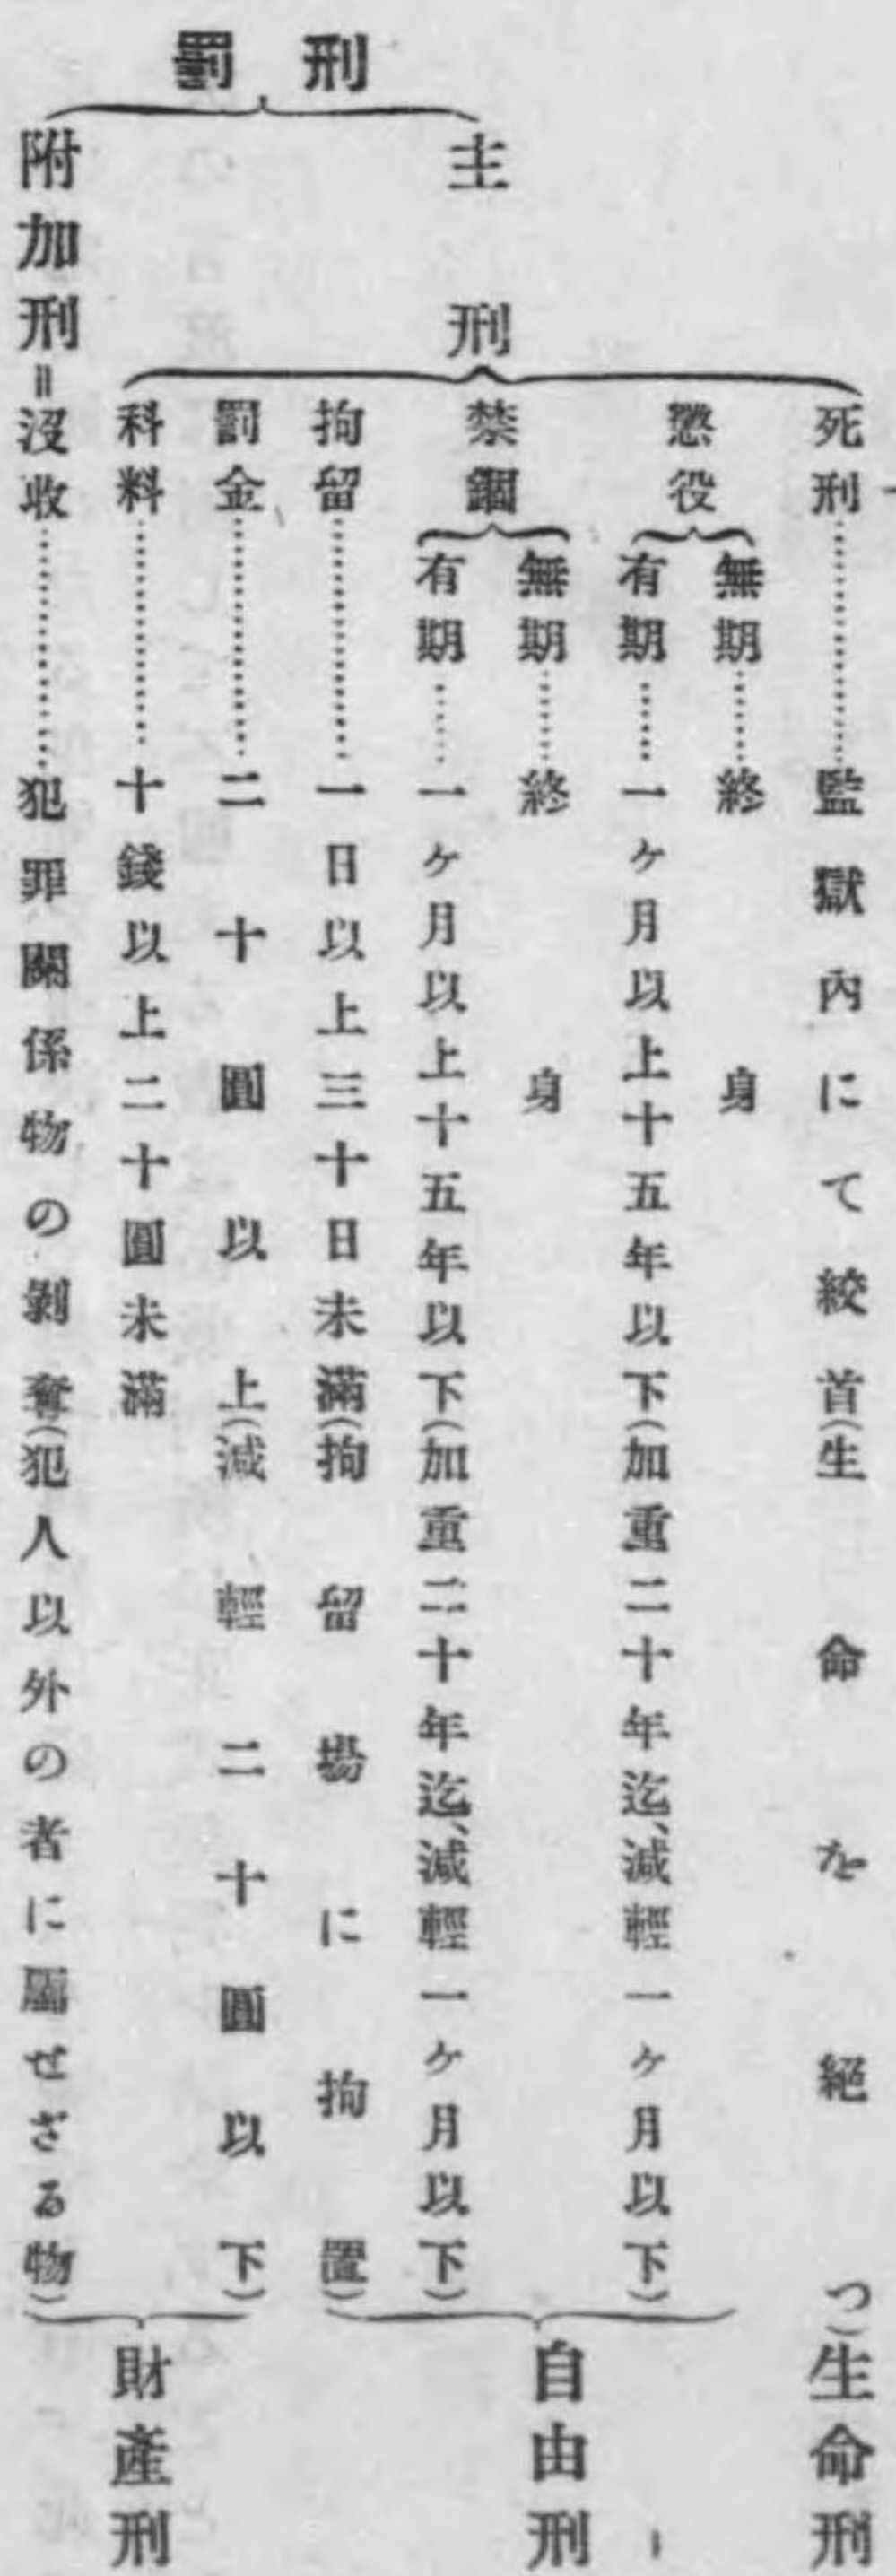 刑罰
主刑
死刑………監獄內にて絞首(生命を絕つ)生命刑
懲役
無期……終身
有期……一ケ月以上十五年以下(加重二十年迄、減輕一ケ月以下)
禁錮
無期……終身
有期……一ケ月以上十五年以下(加重二十年迄、減輕一ケ月以下)
拘留………一日以上三十日未滿(拘留場に拘置)
自由刑
罰金………二十圓以上(減輕二十圓以下)
科料………十錢以上二十圓未滿
附加刑=沒收………犯罪關係物の剝奪(犯人以外の者に屬せざる物)
財產刑